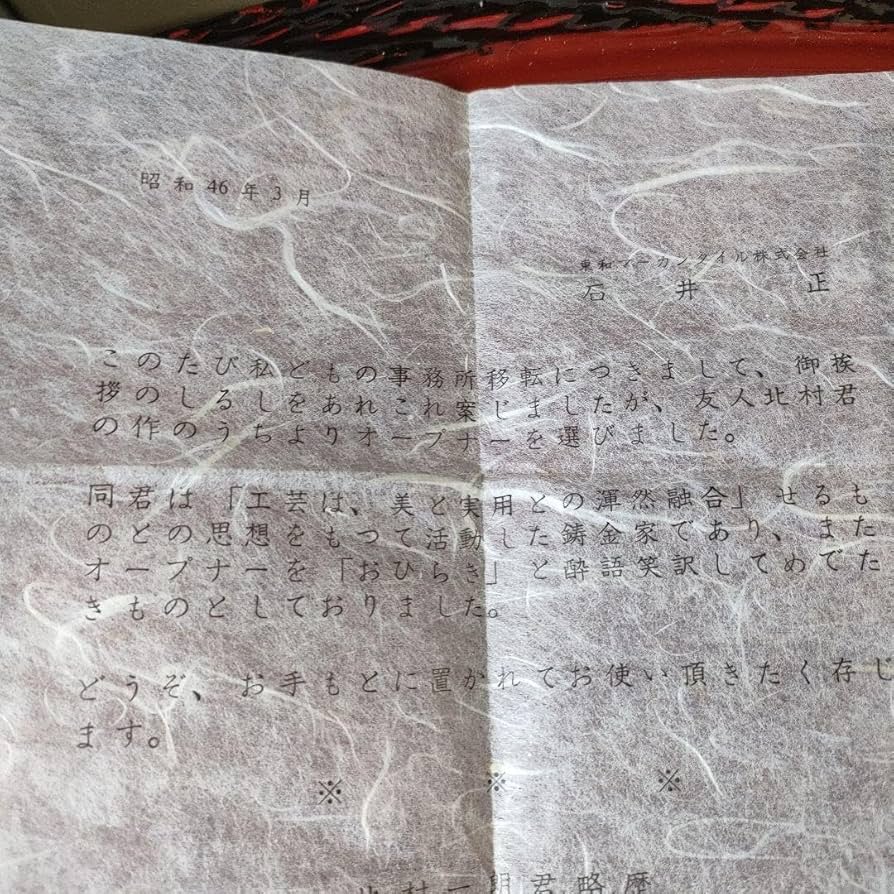 昭和46年3月
東和マーカンタイル株式会社
石井正
このたび私どもの事務所移転につきまして、御挨
拶のしるしをあれこれ案じましたが、友人北村君
の作のうちよりオープナーを選びました。
同君は「工芸は、美と実用との渾然融合」せるも
のとの思想をもつて活動した鋳金家であり、また
オープナーを「おひらき」と酔語笑訳してめでた
きものとしておりました。
どうぞ、お手もとに置かれてお使い頂きたく存じ
ます。
※ ※ ※
北村一朗君略歴